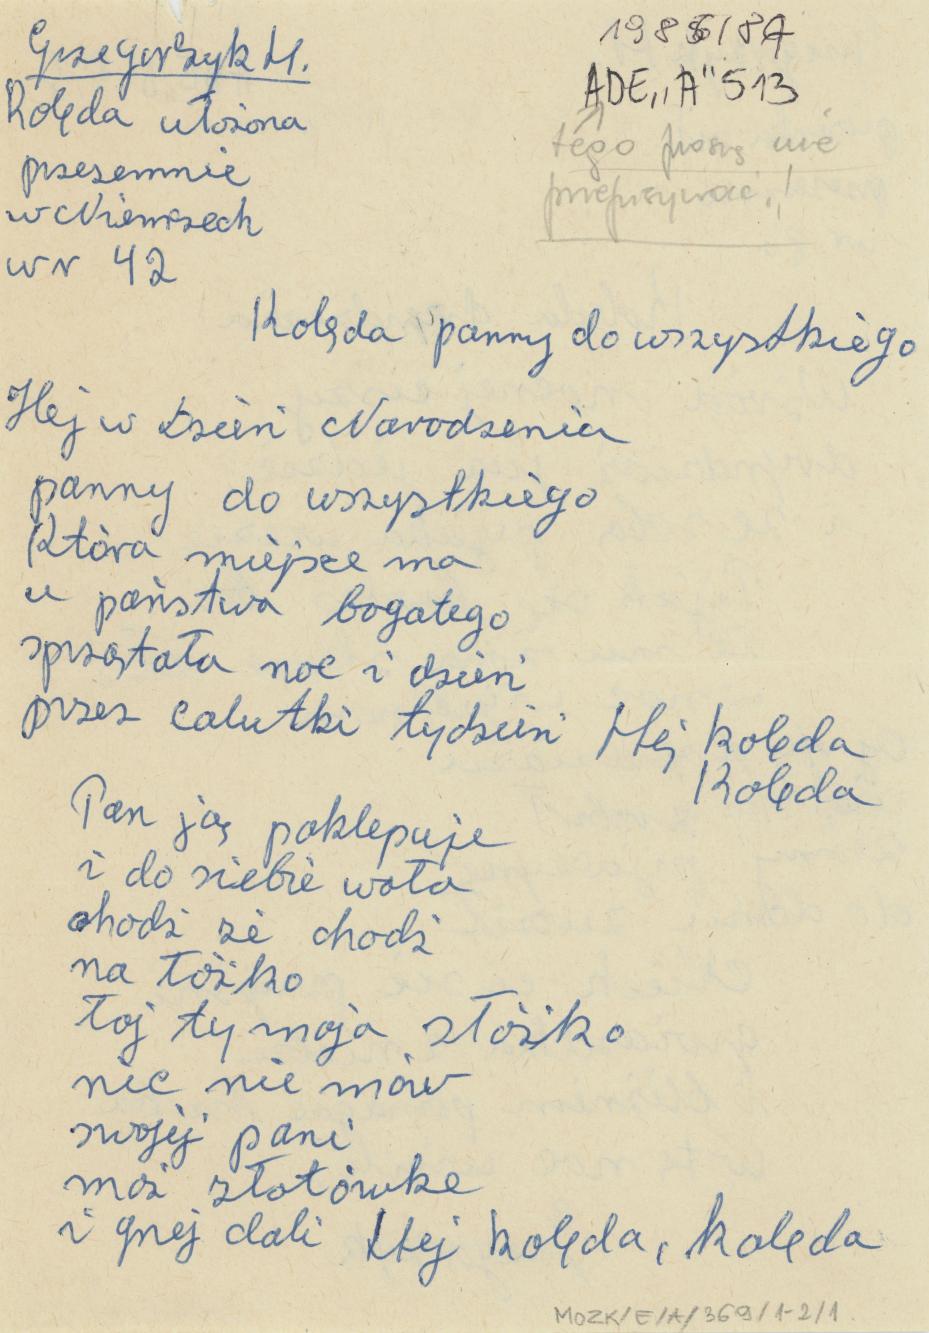 Grzegorzyk M.
1985/87
ADE „A" 513
tego proszę nie
przepisywać!
Kolęda ułożona
przezemnie
w Niemczech
w r 42
Kolęda panny do wszystkiego
Hej w Dzień Narodzenia
panny do wszystkiego
Która miejsce ma
u państwa bogatego
sprzątała noc i dzień
przez calutki tydzień Hej kolęda
Kolęda
Pan ją poklepuje
i do siebie woła
chodź że chodź
na łóżko
toj ty moja złóżko
nic nie mów
swojej pani
moż złotówke
i grej dali Hej kolęda, kolęda
MOZK/E/A/369/1-2/1